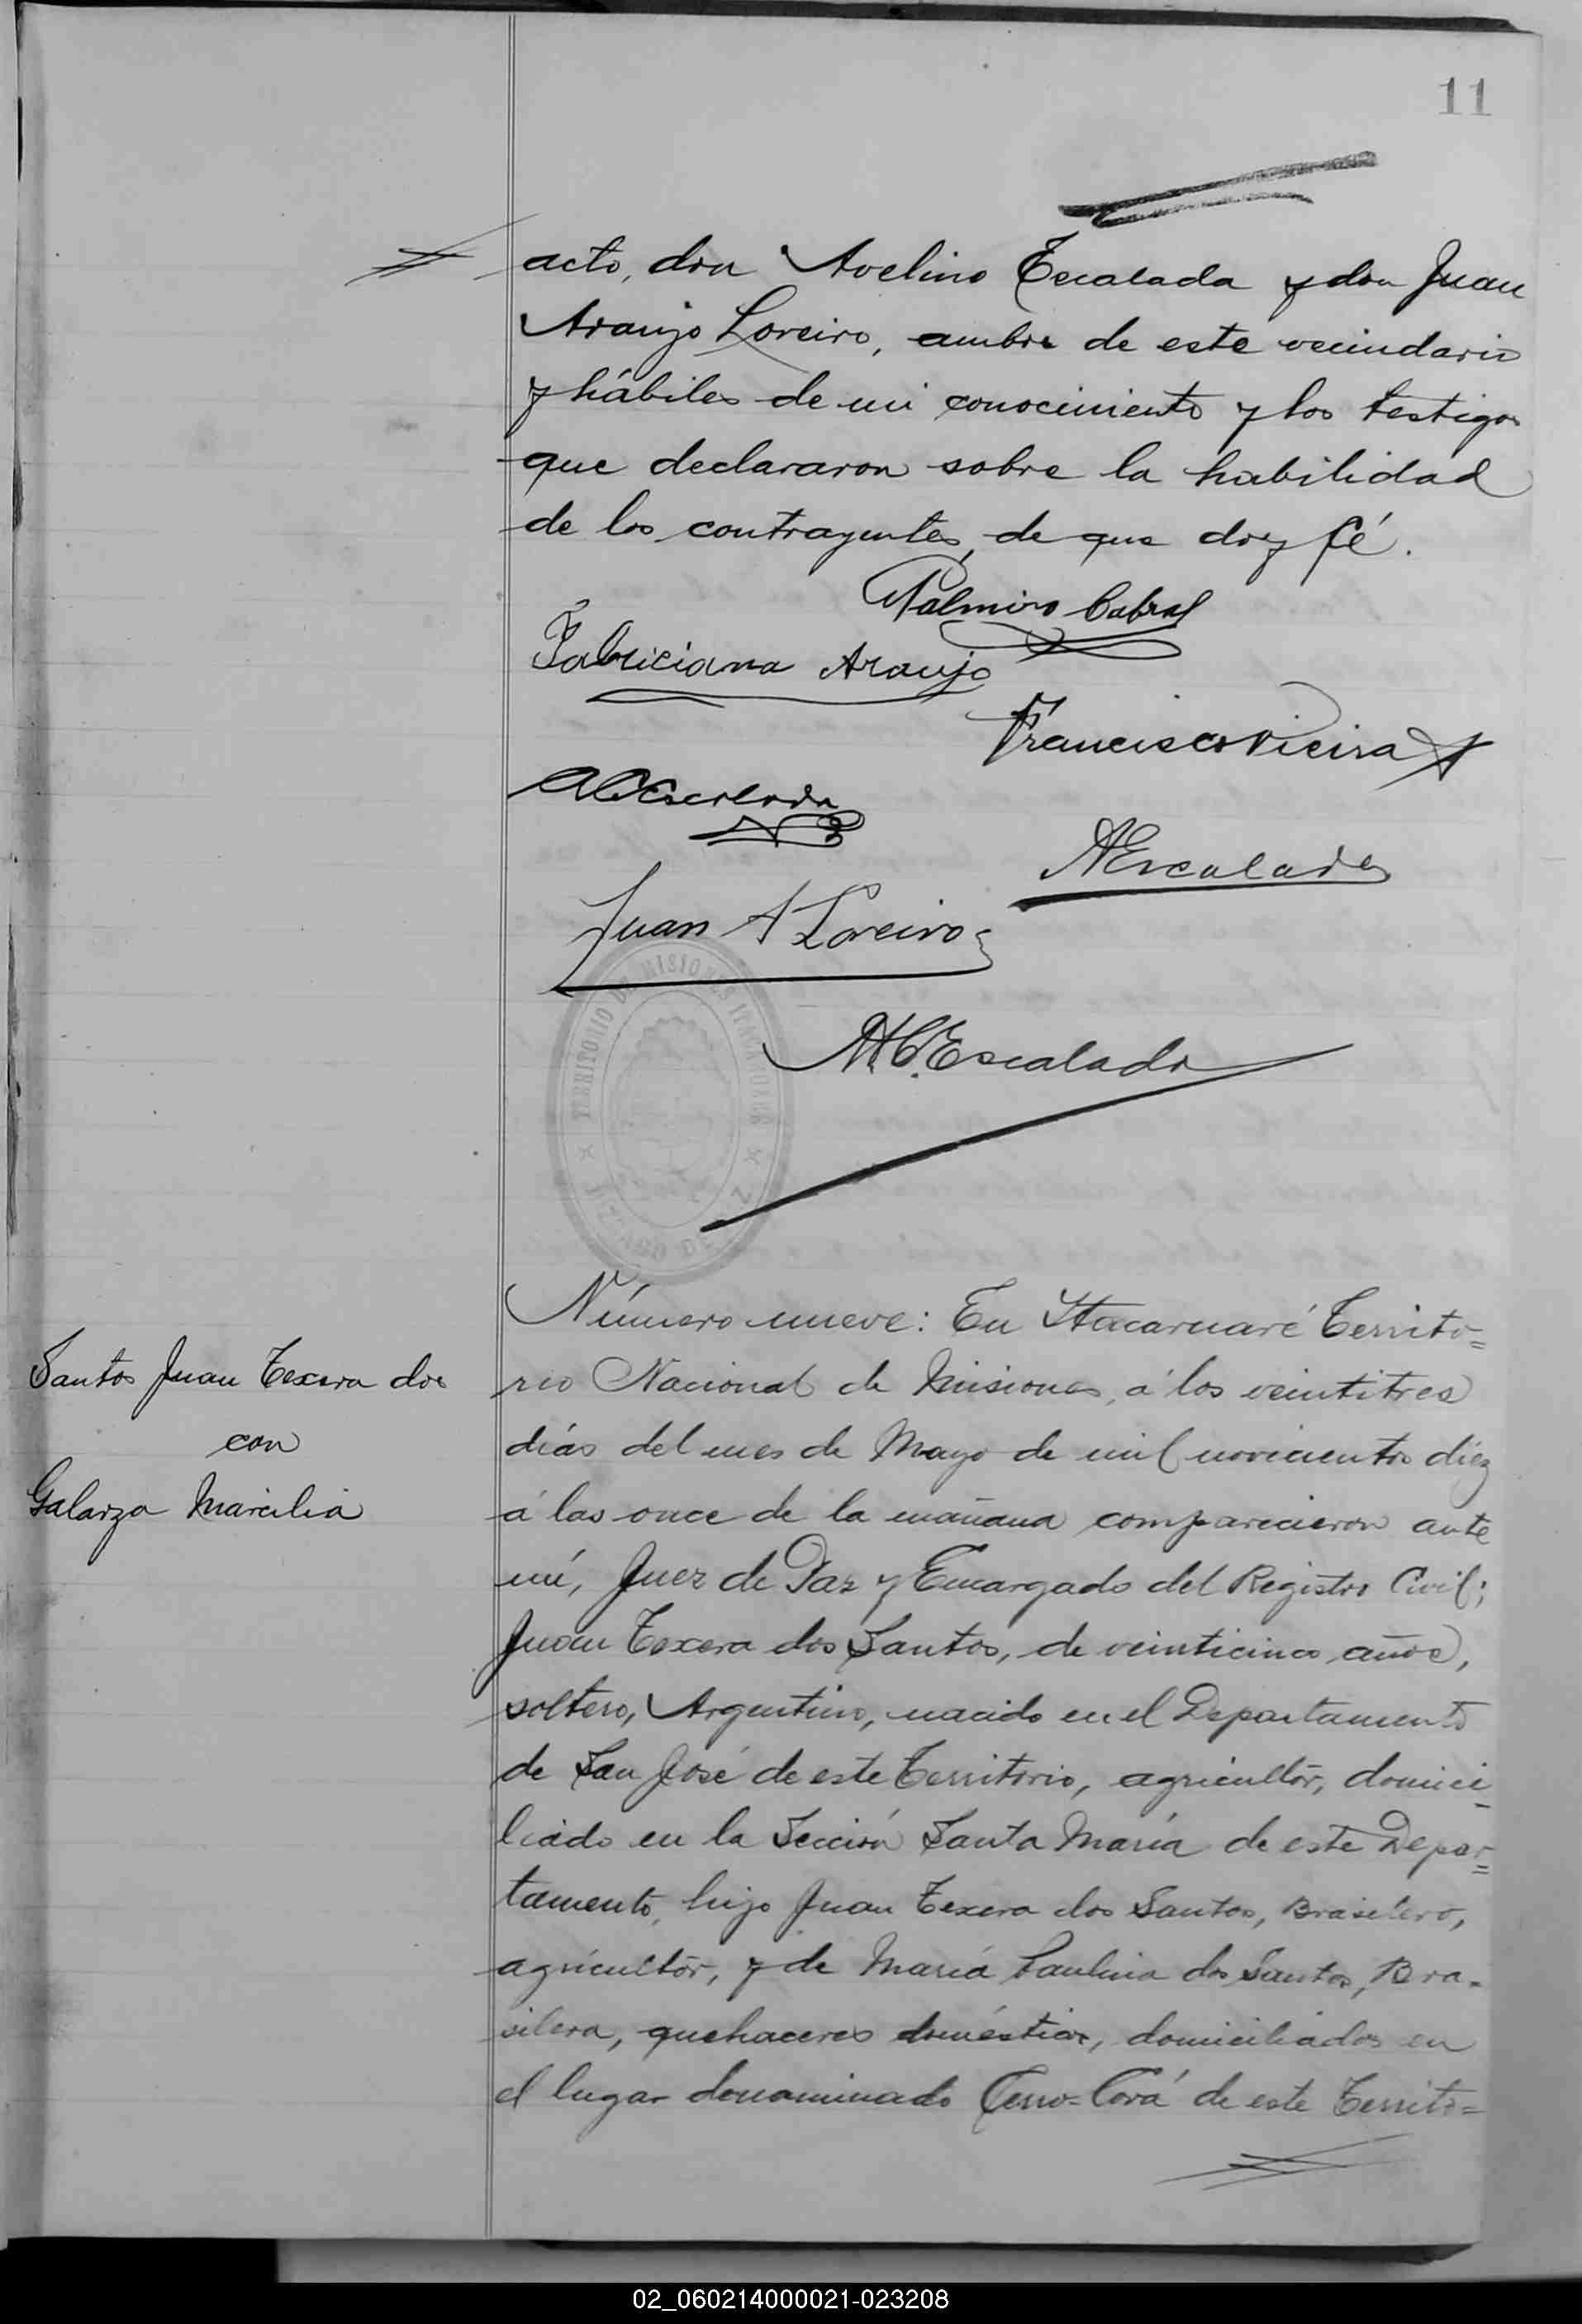 11
acto, don Avelino Escalada y don Juan
Araujo Loreiro, ambos de este vecindario
y hábiles de mi conocimiento y los testigos
que declararon sobre la habilidad
de los contrayentes, de que doy fé.
Palmiro Cabral
Fabriciana Araujo
Francisco Vieira
Escalada
A Escalada
Juan A Loreiro
TERRITORIO DE MISIONES ITACARUARE
JUZGADO DE PAZ
A. C. Escalada
Número nueve: En Itacaruaré Territo=
Santos Juan Texera dos
con
Galarza Marcilia
rio Nacional de Misiones, á los veintitres
días del mes de Mayo de mil novecientos diez
á las once de la mañana comparecieron ante
mí, Juez de Paz y Encargado del Registro Civil;
Juan Texera dos Santos, de veinticinco años,
soltero, Argentino, nacido en el Departamento
de San José de este Territorio, agricultor, domici-
liado en la Sección Santa María de este Depar=
tamento, hijo Juan Texera dos Santos, Brasilero,
agricultor, y de María Paulina dos Santos, Bra-
silera, quehaceres domésticos, domiciliados en
el lugar denominado Cerro-Corá de este Territo=
02_060214000021-023208